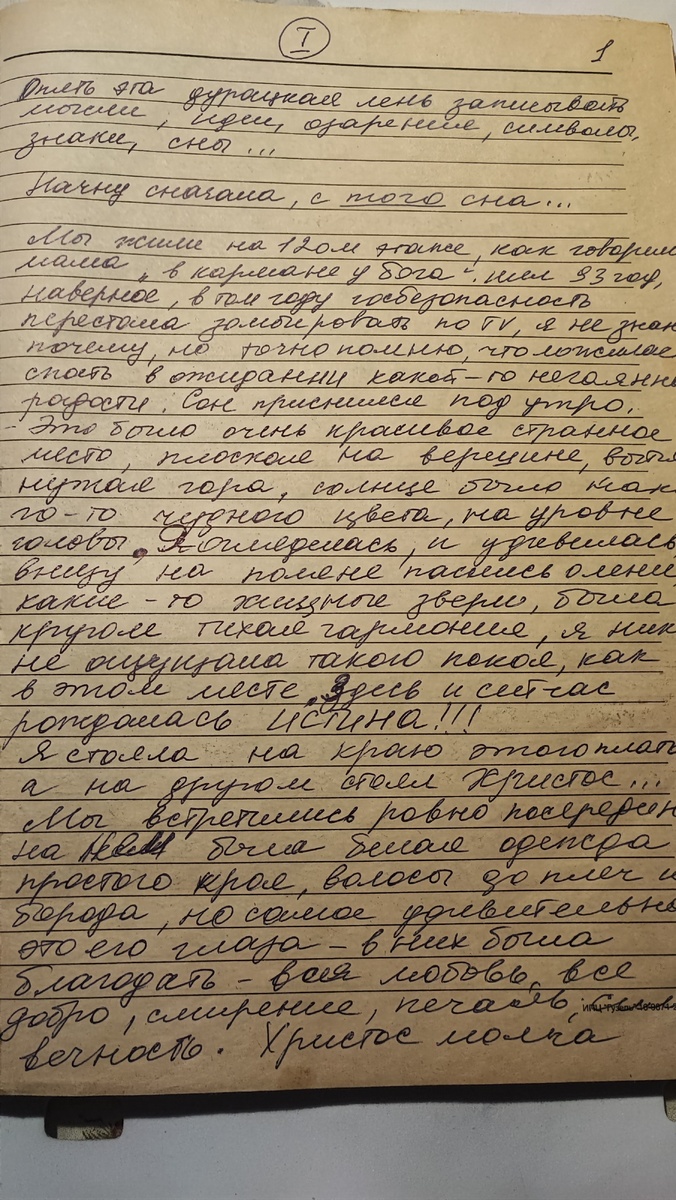 I
1
Опять эта дурацкая лень записывать
мысли, идеи, озарения, символы,
знаки, сны...
Начну сначала, с того сна...
Мы жили на 12ом этаже, как говорила
мама „в кармане у бога“. шел 93 год,
наверное, в том году госбезопасность
перестала зомбировать по TV, я не знаю
почему, но точно помню, что ложилась
спать в ожидании какой-то нечаянной
радости. Сон приснился под утро.
- Это было очень красивое странное
место, плоская на вершине, вытя
нутая гора, солнце было како
го-то чудного цвета, на уровне
головы. Я огляделась, и удивилась
внизу, на поляне паслись олени,
какие-то хищные звери, была
кругом тихая гармония, я ник
не ощущала такого покоя, как
в этом месте. Здесь и сейчас
рождалась ИСТИНА!!!
Я стояла на краю этого плато
а на другом стоял Христос...
Мы встретились ровно посередине
на нем была белая одежда
простого кроя, волосы до плеч и
борода, но самое удивительно
это его глаза - в них была
благодать - вся любовь, все
добро, смирение, печаль,
вечность. Христос молча